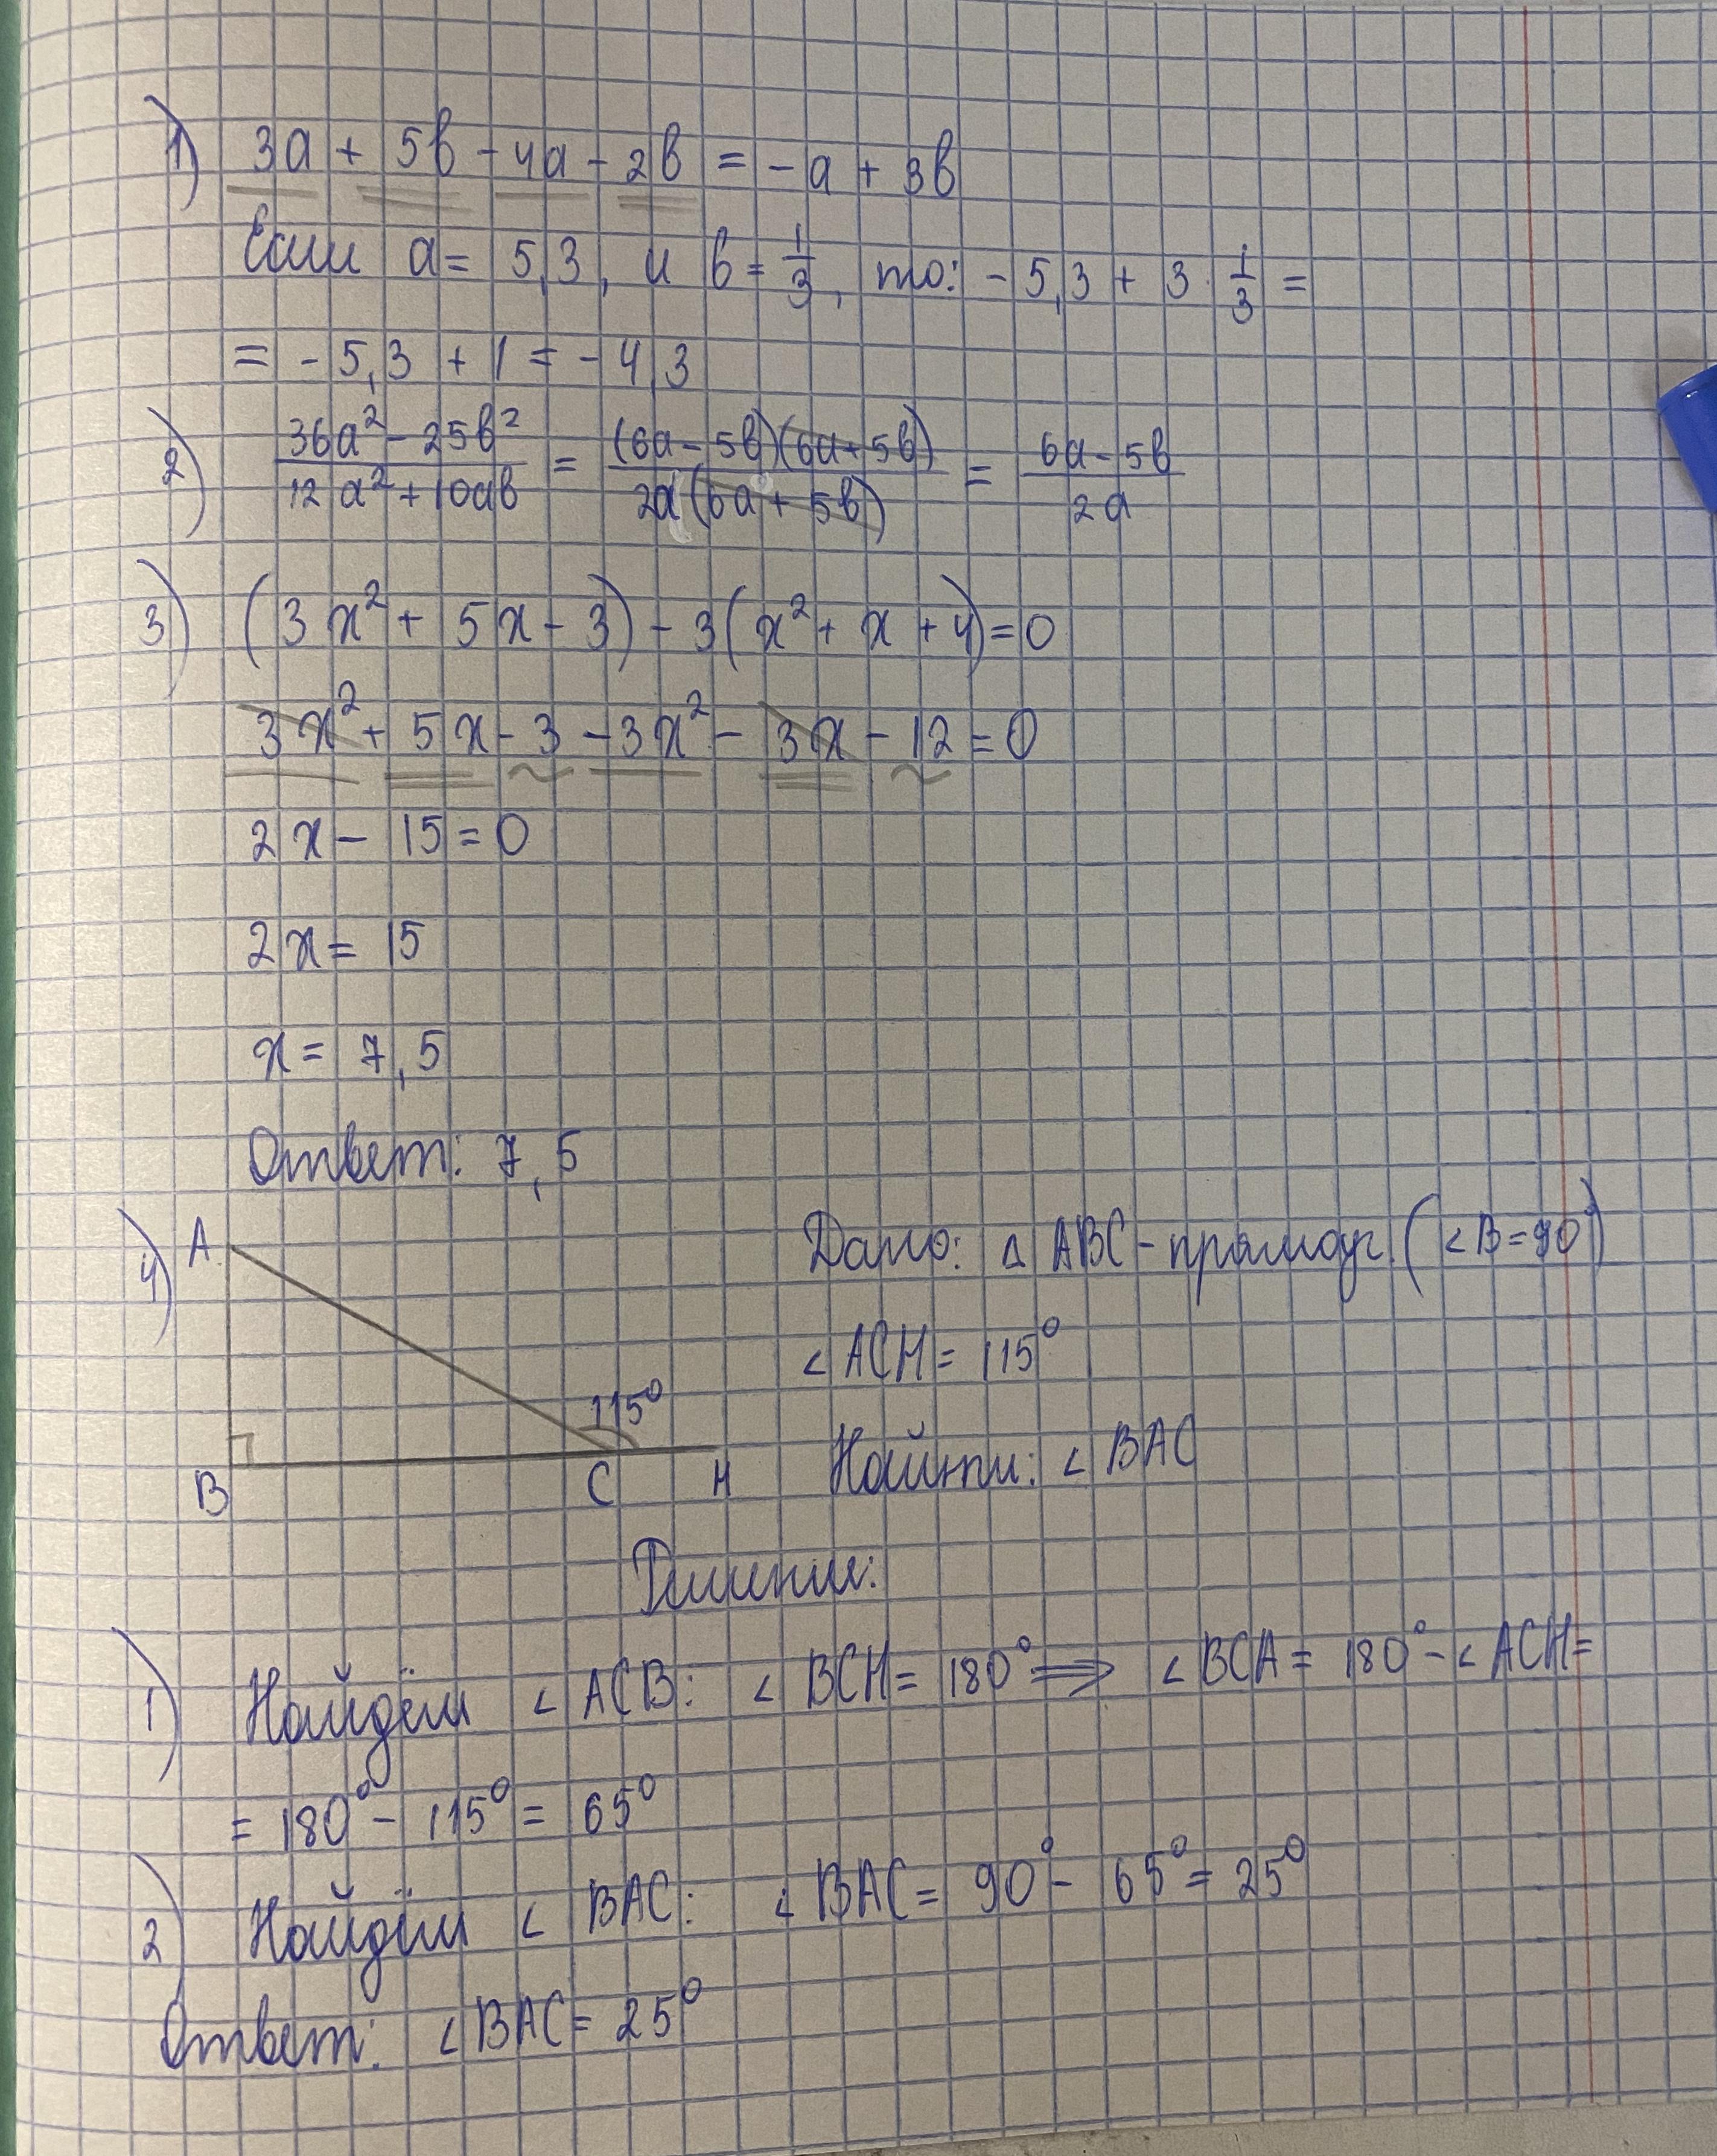 1) 3a + 5b - 4a - 2b = - a + 3b
Если a = 5,3, и b = 1/3, то: - 5,3 + 3 · 1/3 =
= - 5,3 + 1 = - 4,3
2) (36a² - 25b²)/(12a² + 10ab) = ((6a - 5b)(6a + 5b))/(2a(6a + 5b)) = (6a - 5b)/(2a)
3) (3x² + 5x - 3) - 3(x² + x + 4) = 0
3x² + 5x - 3 - 3x² - 3x - 12 = 0
2x - 15 = 0
2x = 15
x = 7,5
Ответ: 7,5
4) A
B
C
H
115°
Дано: △ ABC - прямоуг. (∠B = 90°)
∠ ACH = 115°
Найти: ∠ BAC
Решение:
1) Найдём ∠ ACB: ∠ BCH = 180° ⟹ ∠ BCA = 180° - ∠ ACH =
= 180° - 115° = 65°
2) Найдём ∠ BAC: ∠ BAC = 90° - 65° = 25°
Ответ: ∠ BAC = 25°